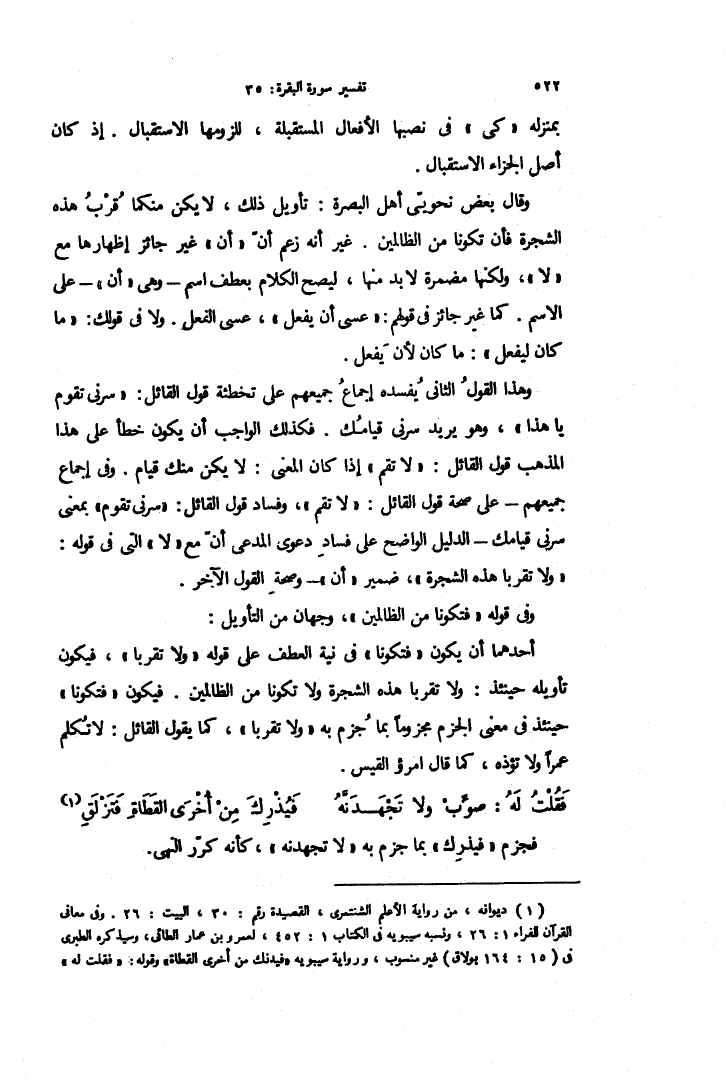 ٥٢٢ تفسير سورة البقرة : ٣٥
بمنزله « كى » فى نصبها الأفعال المستقبلة ، للزومها الاستقبال . إذ كان
أصل الجزاء الاستقبال .
وقال بعض نحويّى أهل البصرة : تأويل ذلك ، لا يكن منكما قُرْبُ هذه
الشجرة فأن تكونا من الظالمين . غير أنه زعم أنّ « أن » غير جائز إظهارها مع
« لا » ، ولكنها مضمرة لا بد منها ، ليصح الكلام بعطف اسم – وهى « أن » – على
الاسم . كما غير جائز فى قولهم : « عسى أن يفعل » ، عسى الفعل . ولا فى قولك : « ما
كان ليفعل » : ما كان لأن يَفعل .
وهذا القولُ الثانى يُفسده إجماعُ جميعهم على تخطئة قول القائل : « سرنى تقوم
يا هذا » ، وهو يريد سرنى قيامُك . فكذلك الواجب أن يكون خطأً على هذا
المذهب قول القائل : « لا تقم » إذا كان المعنى : لا يكن منك قيام . وفى إجماع
جميعهم – على صحة قول القائل : « لا تقم » ، وفساد قول القائل : « سرنى تقوم » بمعنى
سرنى قيامك – الدليل الواضح على فسادِ دعوى المدعى أنّ مع « لا » التى فى قوله :
« ولا تقربا هذه الشجرة » ، ضمير « أن » – وصحةِ القول الآخر .
وفى قوله « فتكونا من الظالمين » ، وجهان من التأويل :
أحدهما أن يكون « فتكونا » فى نية العطف على قوله « ولا تقربا » ، فيكون
تأويله حينئذ : ولا تقربا هذه الشجرة ولا تكونا من الظالمين . فيكون « فتكونا »
حينئذ فى معنى الجزم مجزوماً بما جُزم به « ولا تقربا » ، كما يقول القائل : لا تُكلم
عمراً ولا تؤذه ، كما قال امرؤ القيس .
فَقُلْتُ لَهُ : صَوِّبْ ولا تَجْهَدَنَّهُ فَيُذْرِكَ مِنْ أُخْرَى القَطَاةِ فَتَزْلَقِ (١)
فجزم « فيذرك » بما جزم به « لا تجهدنه » ، كأنه كرّر النهى .
( ١ ) ديوانه ، من رواية الأعلم الشنتمرى ، القصيدة رقم : ٣٠ ، البيت : ٢٦ . وفى معانى
القرآن للفراء ١ : ٢٦ ، ونسبه سيبويه فى الكتاب ١ : ٤٥٢ ، لعمرو بن عمار الطائى ، وسيذكره الطبرى
فى ( ١٥ : ١٦٤ بولاق ) غير منسوب ، ورواية سيبويه « فيدنك من أخرى القطاة » وقوله : « فقلت له »